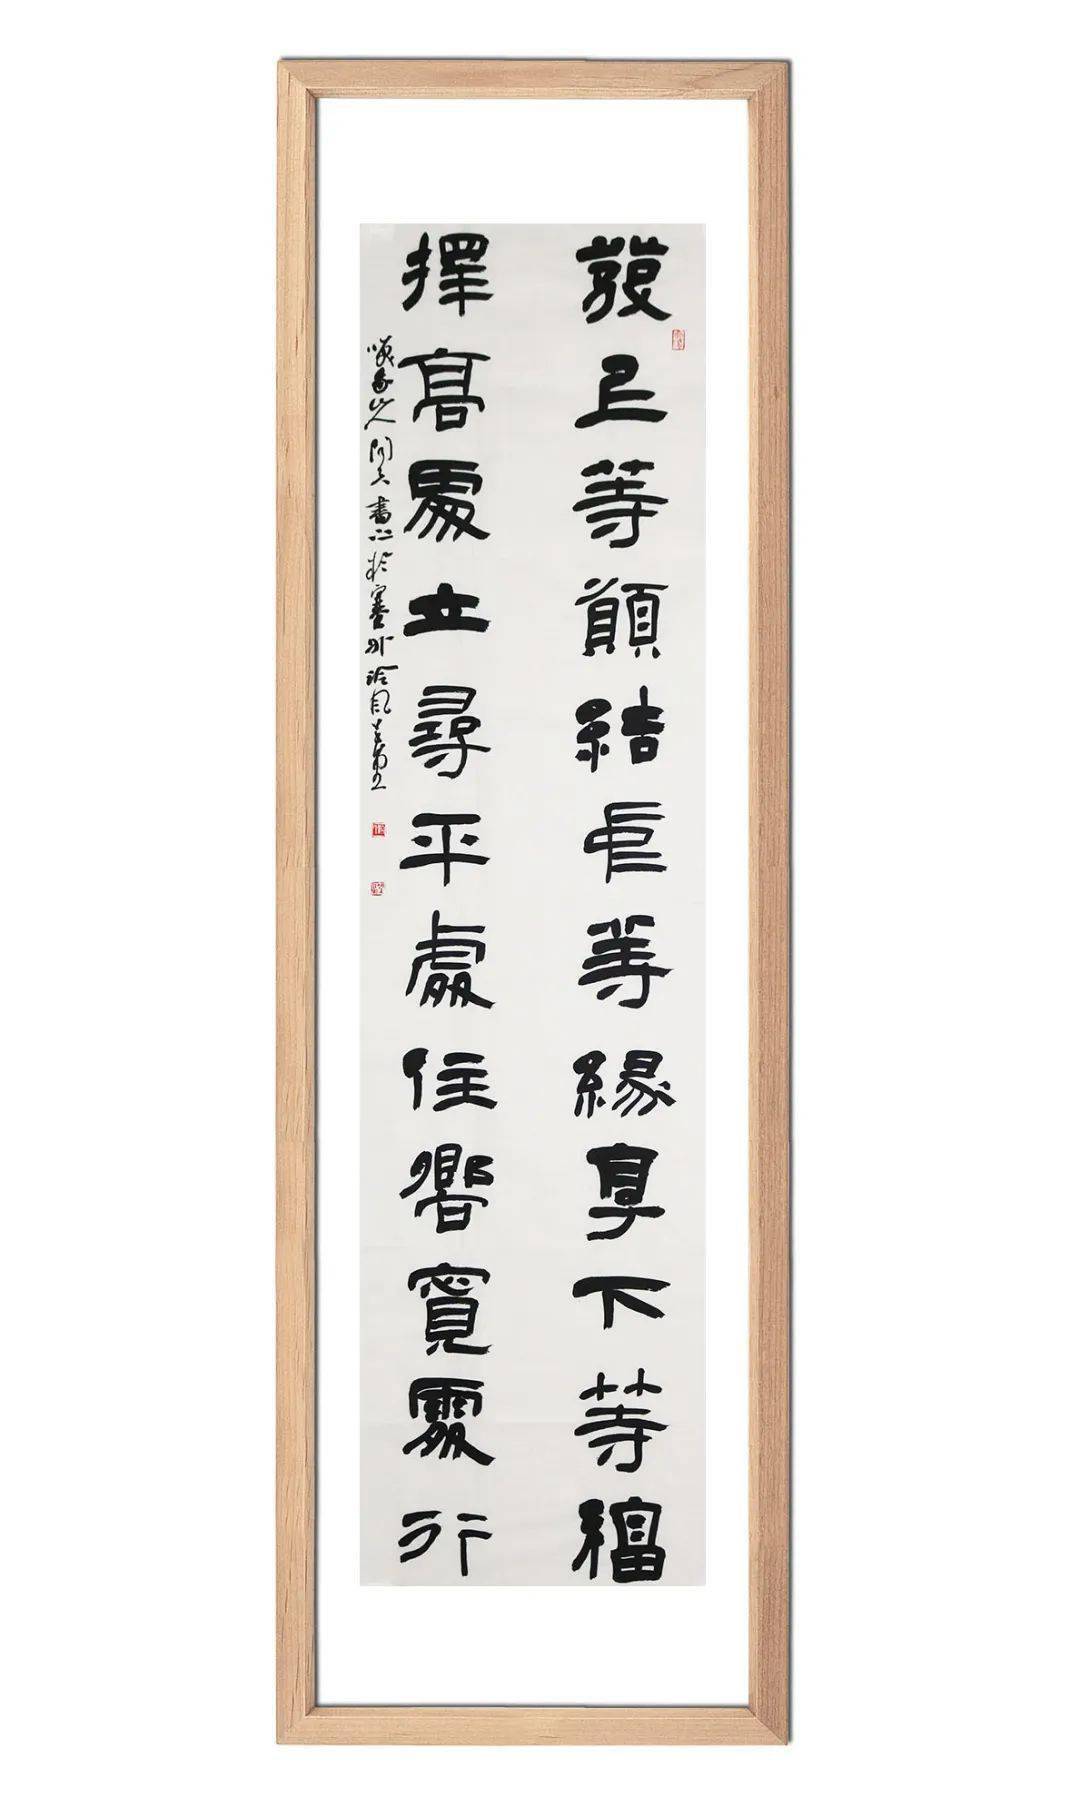 發上等願結中等緣享下等福
擇高處立尋平處住嚮寬處行
山人 書 於塞外